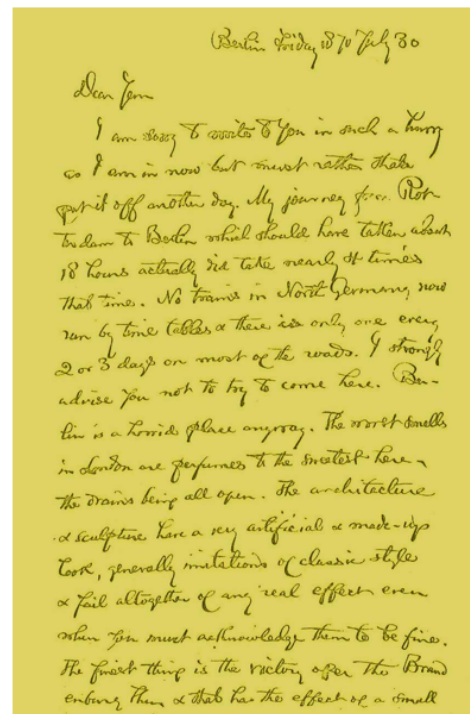 Berlin Friday 1870 July 30
Dear Jem
I am sorry to write to you in such a hurry
as I am in now but must rather than
put it off another day. My journey from Rot-
terdam to Berlin which should have taken about
18 hours actually did take nearly times
that time. No trains in North Germany now
run by time tables & there is only one every
2 or 3 days on most of the roads. I strongly
advise you not to try to come here. Ber-
lin is a horrid place anyway. The worst smells
in London are perfumes to the sweetest here,
the drains being all open. The architecture
& sculpture have a very artificial & made-up
look, generally imitations of classic style
& fail altogether of any real effect even
when you must acknowledge them to be fine.
The finest thing is the Victory over the Brand
enburg Thor & that has the effect of a small